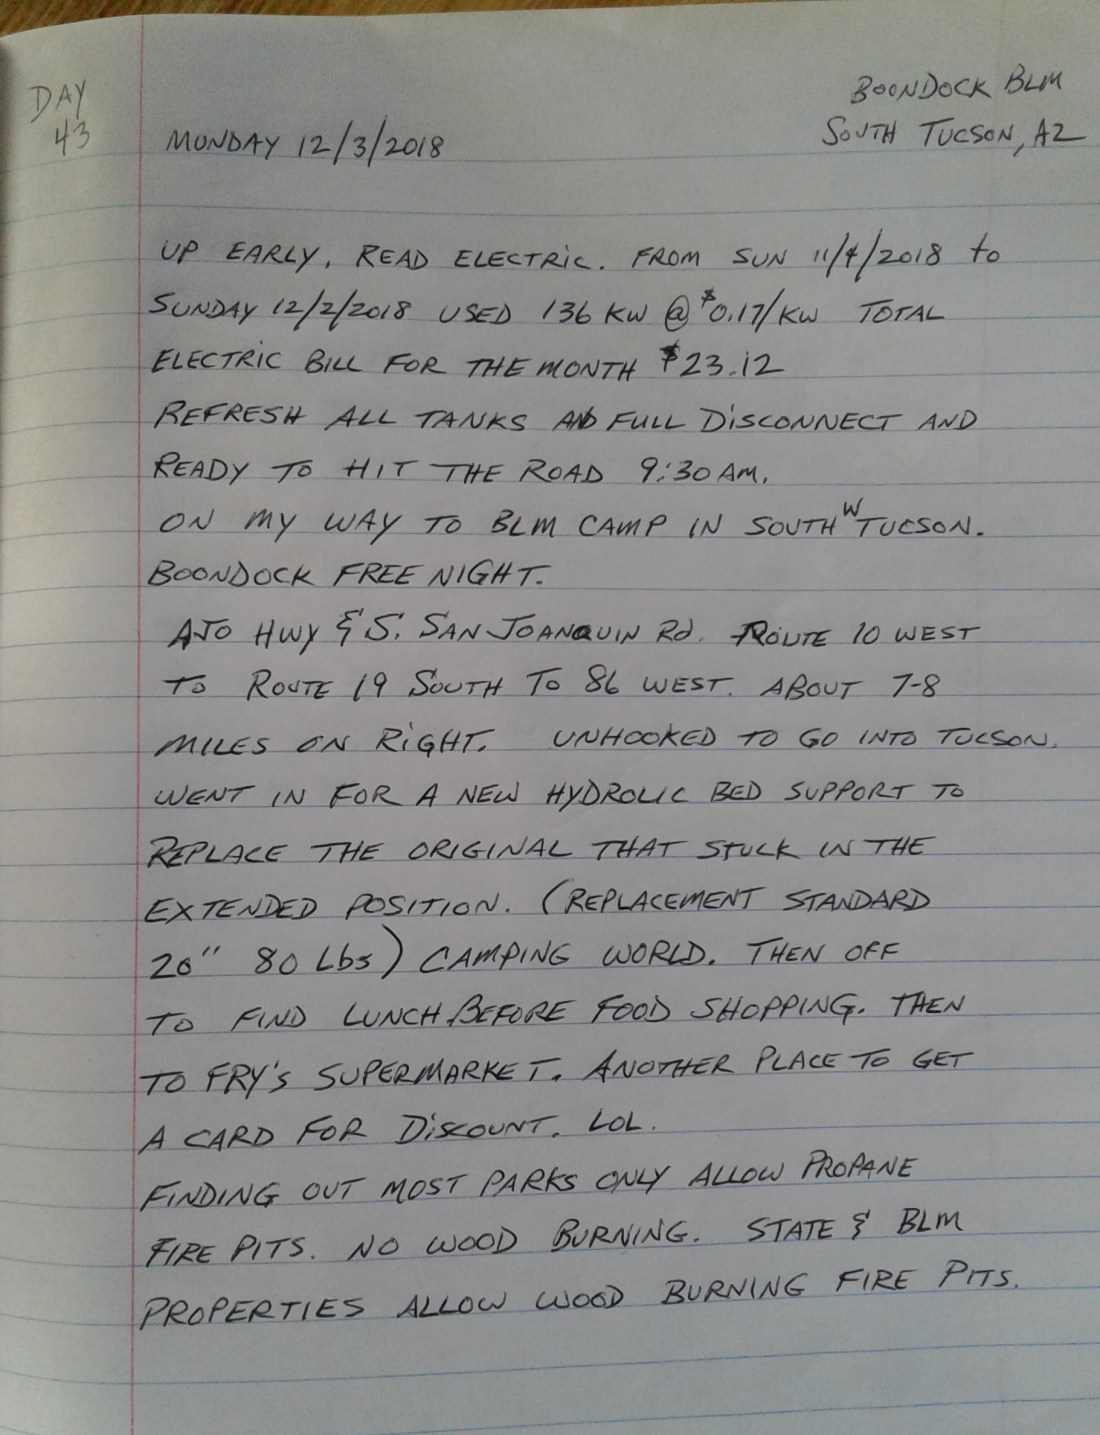 DAY
43
BOONDOCK BLM
SOUTH TUCSON, AZ
MONDAY 12/3/2018
UP EARLY, READ ELECTRIC. FROM SUN 11/4/2018 to
SUNDAY 12/2/2018 USED 136 KW @ $0.17/KW TOTAL
ELECTRIC BILL FOR THE MONTH $23.12
REFRESH ALL TANKS AND FULL DISCONNECT AND
READY TO HIT THE ROAD 9:30 AM.
ON MY WAY TO BLM CAMP IN SOUTH W TUCSON.
BOONDOCK FREE NIGHT.
AJO HWY & S. SAN JOANQUIN Rd. ROUTE 10 WEST
TO ROUTE 19 SOUTH TO 86 WEST. ABOUT 7-8
MILES ON RIGHT. UNHOOKED TO GO INTO TUCSON.
WENT IN FOR A NEW HYDROLIC BED SUPPORT TO
REPLACE THE ORIGINAL THAT STUCK IN THE
EXTENDED POSITION. (REPLACEMENT STANDARD
20" 80 Lbs) CAMPING WORLD. THEN OFF
TO FIND LUNCH BEFORE FOOD SHOPPING. THEN
TO FRY'S SUPERMARKET. ANOTHER PLACE TO GET
A CARD FOR DISCOUNT. LOL.
FINDING OUT MOST PARKS ONLY ALLOW PROPANE
FIRE PITS. NO WOOD BURNING. STATE & BLM
PROPERTIES ALLOW WOOD BURNING FIRE PITS.